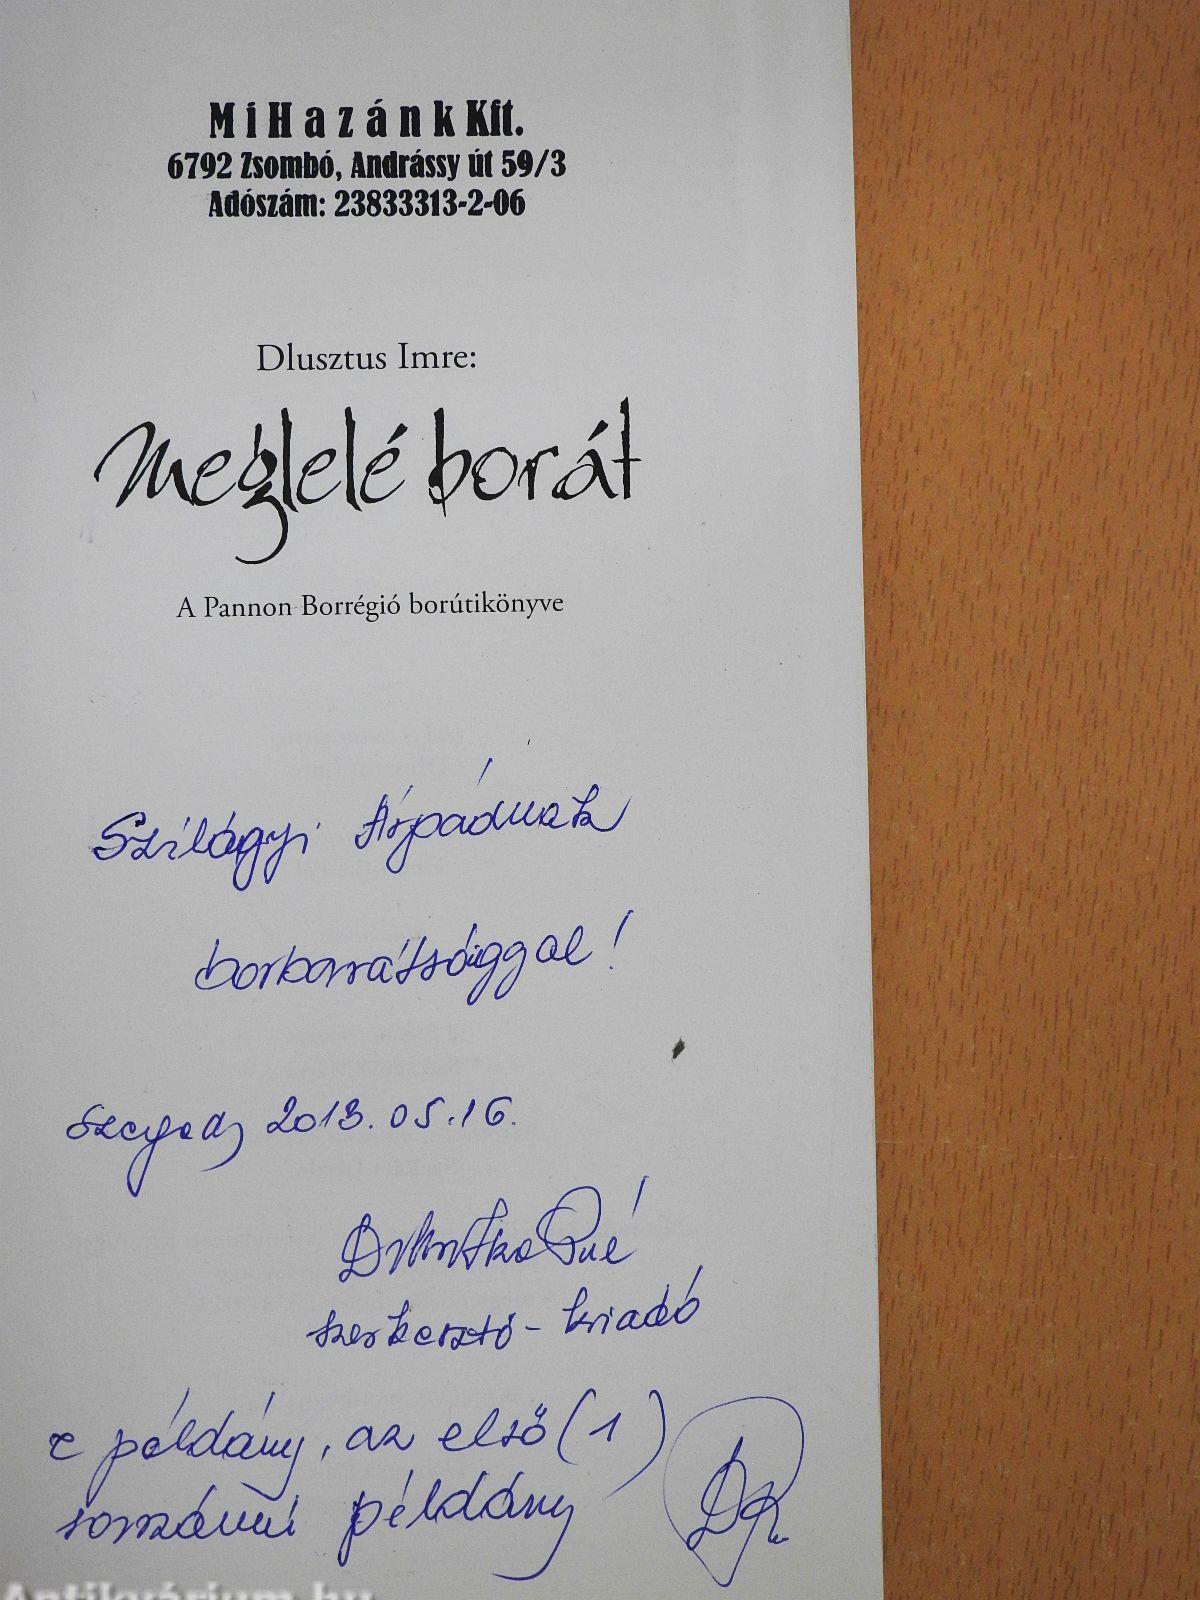 MiHazánk Kft.
6792 Zsombó, Andrássy út 59/3
Adószám: 23833313-2-06
Dlusztus Imre:
Meglelé borát
A Pannon Borrégió borútikönyve
Szilágyi Árpádnak
borbarátsággal!
Szeged, 2013. 05. 16.
szerkesztő-kiadó
e példány, az első (1)
sorszámú példány
Antikvárium.hu